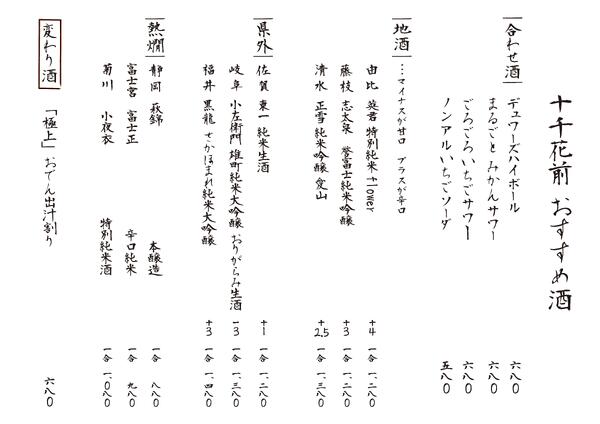 十千花前 おすすめ酒
合わせ酒
デュワーズハイボール 六八〇
まるごとみかんサワー 六八〇
ごろごろいちごサワー 六八〇
ノンアルいちごソーダ 五八〇
地酒
…マイナスが甘口 プラスが辛口
由比 英君 特別純米 flower +4 一合 一、二八〇
藤枝 志太泉 誉富士純米吟醸 +3 一合 一、二八〇
清水 正雪 純米吟醸 愛山 +2.5 一合 一、三八〇
県外
佐賀 東一 純米生酒 +1 一合 一、二八〇
岐阜 小左衛門 雄町純米大吟醸 おりがらみ生酒 -3 一合 一、三八〇
福井 黒龍 さかほまれ純米大吟醸 +3 一合 一、四八〇
熱燗
静岡 萩錦 本醸造 一合 八八〇
富士宮 富士正 辛口純米 一合 九八〇
菊川 小夜衣 特別純米酒 一合 一、〇八〇
変わり酒
「極上」おでん出汁割り 六八〇